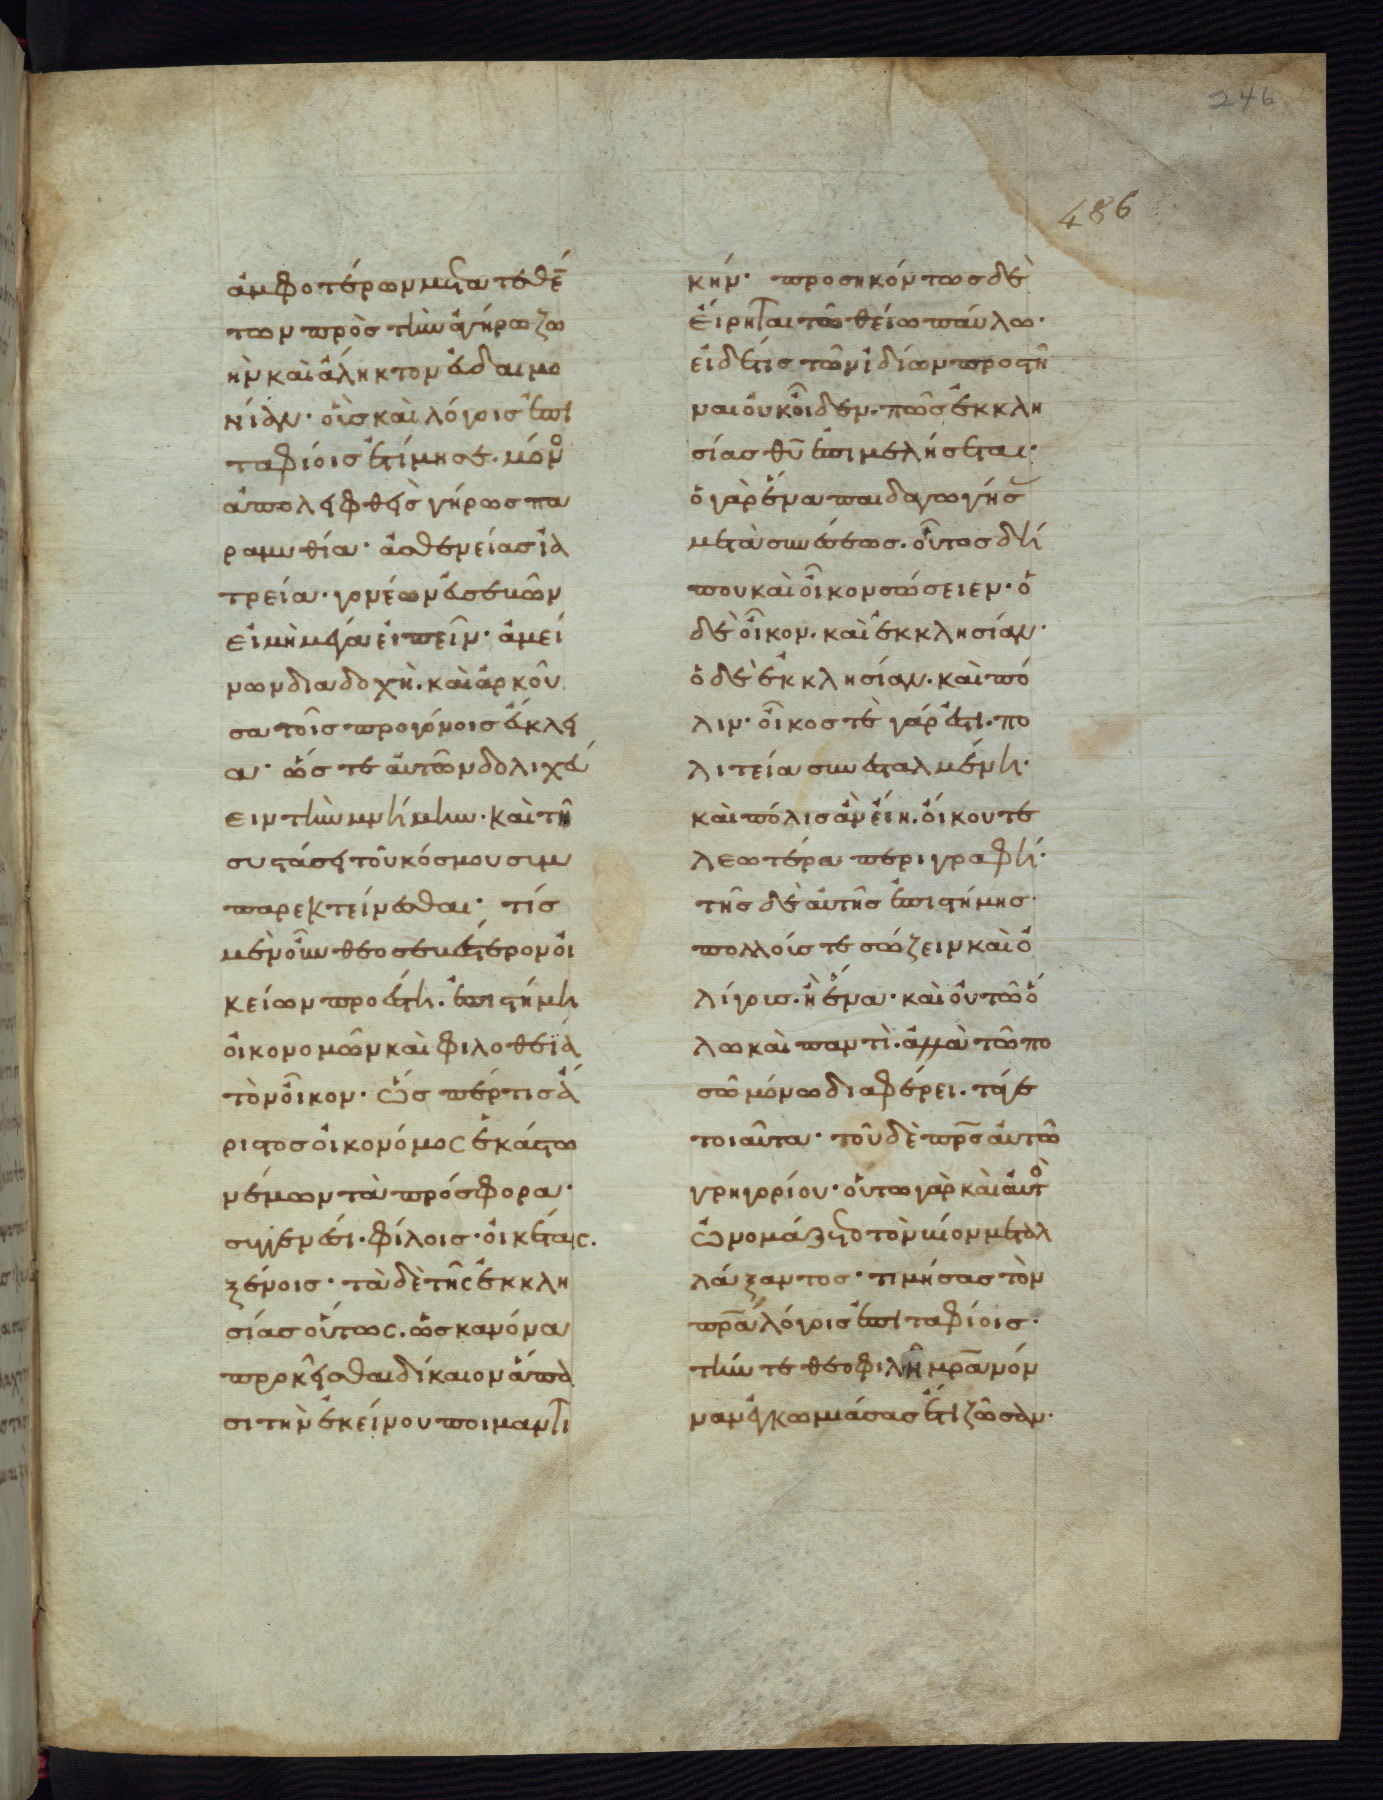 246
486
ἀμφοτέρων μετατεθέν
των πρὸς τὴν ἀγήρω ζω
ὴν καὶ ἄληκτον εὐδαιμο
νίαν· οὓς καὶ λόγοις ἐπι
ταφίοις ἐτίμησε. μόνον
ἀπολειφθεὶς γήρως πα
ραμυθία· ἀσθενείας ἰα
τρεία· γονέων εὐσεβῶν
εἰ μὴ μέγα εἰπεῖν· ἀμεί
νων διαδοχὴ. καὶ ἀρκοῦ
σα τοῖς προγόνοις εὔκλει
α· ὥς τε αὐτῶν δολιχεύ
ειν τὴν μνήμην· καὶ τῆ
συστάσει τοῦ κόσμου συμ
παρεκτείνεσθαι· τίς
μὲν οὖν θεοσεβέστερον οἰ
κείων προέστη. ἐπιστήμη
οἰκονομῶν καὶ φιλοθεΐα
τὸν οἶκον· ὥς πέρ τις ἄ
ριστος οἰκονόμος ἑκάστω
νέμων τὰ πρόσφορα·
συγγενέσι· φίλοις· οἰκέταις.
ξένοις· τὰ δὲ τῆς ἐκκλη
σίας οὕτως. ὡς κανόνα
προκεῖσθαι δίκαιον ἅπα
σι τὴν ἐκείνου ποιμαντι
κήν· προσηκόντως δὲ
εἴρηται τῶ θείω παύλω·
εἰ δέ τις τῶν ἰδίων προστῆ
ναι οὐκ οἶδεν. πῶς ἐκκλη
σίας θυ ἐπιμελήσεται·
ὁ γὰρ ἕνα παιδαγωγήσας
μετὰ συνέσεως. οὗτος δή
που καὶ οἶκον σώσειεν· ὁ
δὲ οἶκον. καὶ ἐκκλησίαν·
ὁ δὲ ἐκκλησίαν. καὶ πό
λιν· οἶκός τε γάρ ἐστι. πο
λιτεία συνεσταλμένη·
καὶ πόλις ἂν εἴη. οἴκου τε
λεωτέρα περιγραφή·
τῆς δὲ αὐτῆς ἐπιστήμης·
πολλούς τε σώζειν καὶ ὀ
λίγους. ἢ ἕνα· καὶ οὐ τῶ ὅ
λω καὶ παντὶ. ἀλλὰ τῶ πο
σῶ μόνω διαφέρει. τά γε
τοιαῦτα· τοῦ δὲ πρς αὐτῶ
γρηγορίου· οὕτω γὰρ καὶ αὐτὸς
ὠνομάζετο τὸν βίον μεταλ
λάξαντος· τιμήσας τὸν
πρα λόγοις ἐπιταφίοις·
τήν τε θεοφιλῆ μρα νόν
ναν ἐγκωμιάσας ἔτι ζῶσαν·